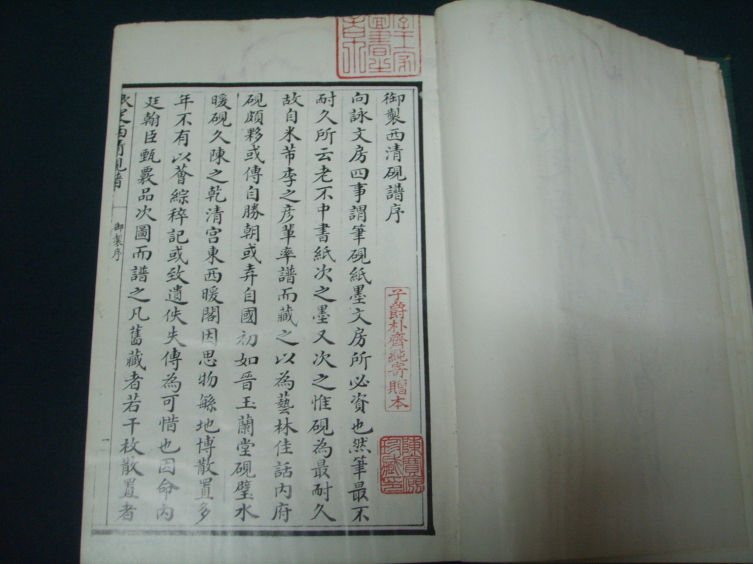 御製西清硯譜序
向詠文房四事謂筆硯紙墨文房所必資也然筆最不
耐久所云老不中書紙次之墨又次之惟硯為最耐久
故自米芾李之彥輩率譜而藏之以為藝林佳話內府
硯頗夥或傳自勝朝或弆自國初如晉玉蘭堂硯璧水
暖硯久陳之乾清宮東西暖閣因思物繇地博散置多
年不有以薈綜稡記或致遺佚失傳為可惜也因命內
廷翰臣甄覈品次圖而譜之凡舊藏者若干枚散置者
西清硯譜
御製序
一
子爵朴齊純寄贈本